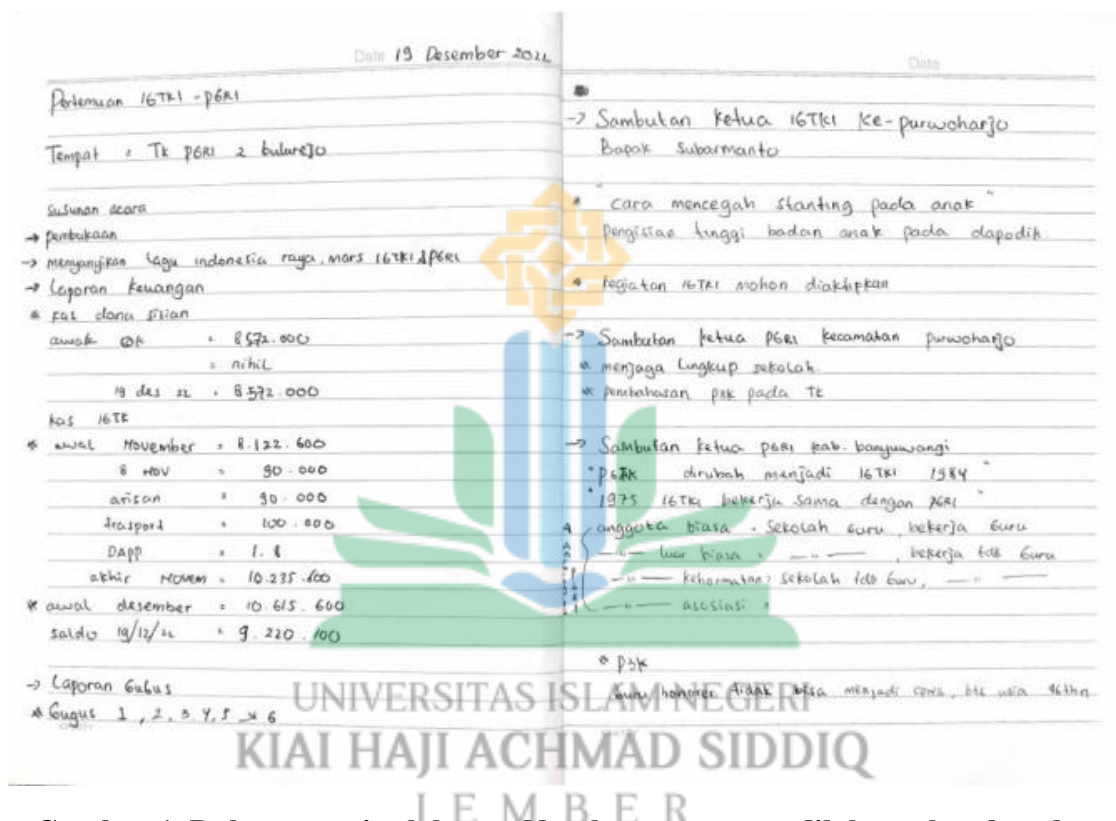 Date 19 Desember 2022
Pertemuan IGTKI - PGRI
Tempat : TK PGRI 2 bulurejo
Susunan acara
→ pembukaan
→ menyanyikan lagu indonesia raya, mars IGTKI & PGRI
→ Laporan keuangan
* kas dana
awal : 8.572.000
= nihil
19 des 22 : 8.572.000
kas IGTK
* awal November : 8.122.600
8 NOV : 90.000
arisan : 90.000
trasport : 100.000
DAPP : 1.8
akhir NOVEM : 10.235.600
* awal desember : 10.615.600
saldo 19/12/22 : 9.220.100
→ Laporan Gugus
* Gugus 1, 2, 3, 4, 5 6
Date
→ Sambutan ketua IGTKI Ke-purwoharjo
Bapak Subarmanto
* "cara mencegah stanting pada anak"
pengisian tinggi badan anak pada dapodik
* kegiatan IGTKI mohon diaktipkan
→ Sambutan ketua PGRI kecamatan purwoharjo
* menjaga lingkup sekolah
* pembahasan pada TK
→ Sambutan ketua PGRI kab. banyuwangi
dirubah menjadi IGTKI 1984"
"1975 IGTKI bekerja sama dengan PGRI"
anggota biasa : Sekolah Guru, bekerja Guru
—"— luar biasa : —"— , bekerja tdk Guru
—"— kehormatan : sekolah tdk Guru, —"—
—"— asosiasi :
* P3K
Guru honorer tidak bisa menjadi CPNS, bts usia thn
UNIVERSITAS ISLAM NEGERI
KIAI HAJI ACHMAD SIDDIQ
JEMBER